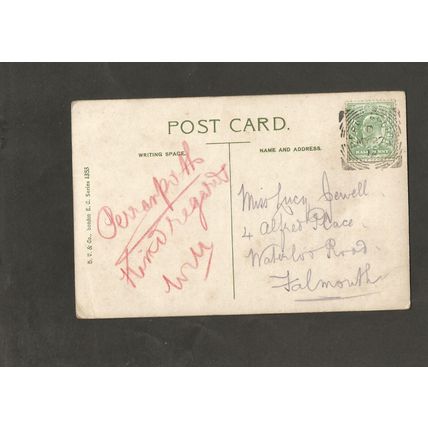 POST CARD.
WRITING SPACE.
NAME AND ADDRESS.
B. V. & Co., London E. C. Series 1353
Perranporth
Kind regards
Will
Miss Lucy Jewell.
4 Alfred Place.
Waterloo Road.
Falmouth.